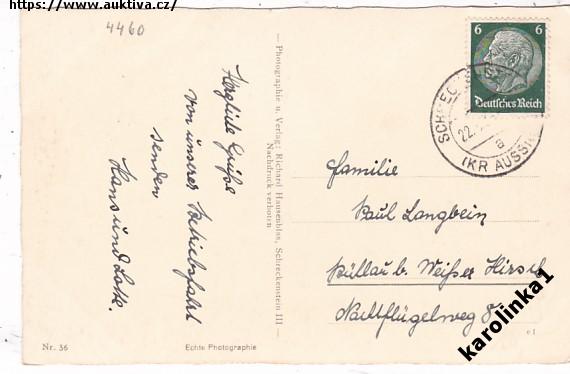 https://www.auktiva.cz/
4460
Herzliche Grüße
von unserer Betriebsfahrt
senden
Hans und Lotte.
— Photographie u. Verlag: Richard Hausenblas, Schreckenstein III —
Nachdruck verboten
6 6
Deutsches Reich
SCHREC
22.
a
(KR AUSSIG
Familie
Paul Langbein
Püllau b. Weißer Hirsch
Nachtflügelweg 8
karolinka1
Nr. 36
Echte Photographie